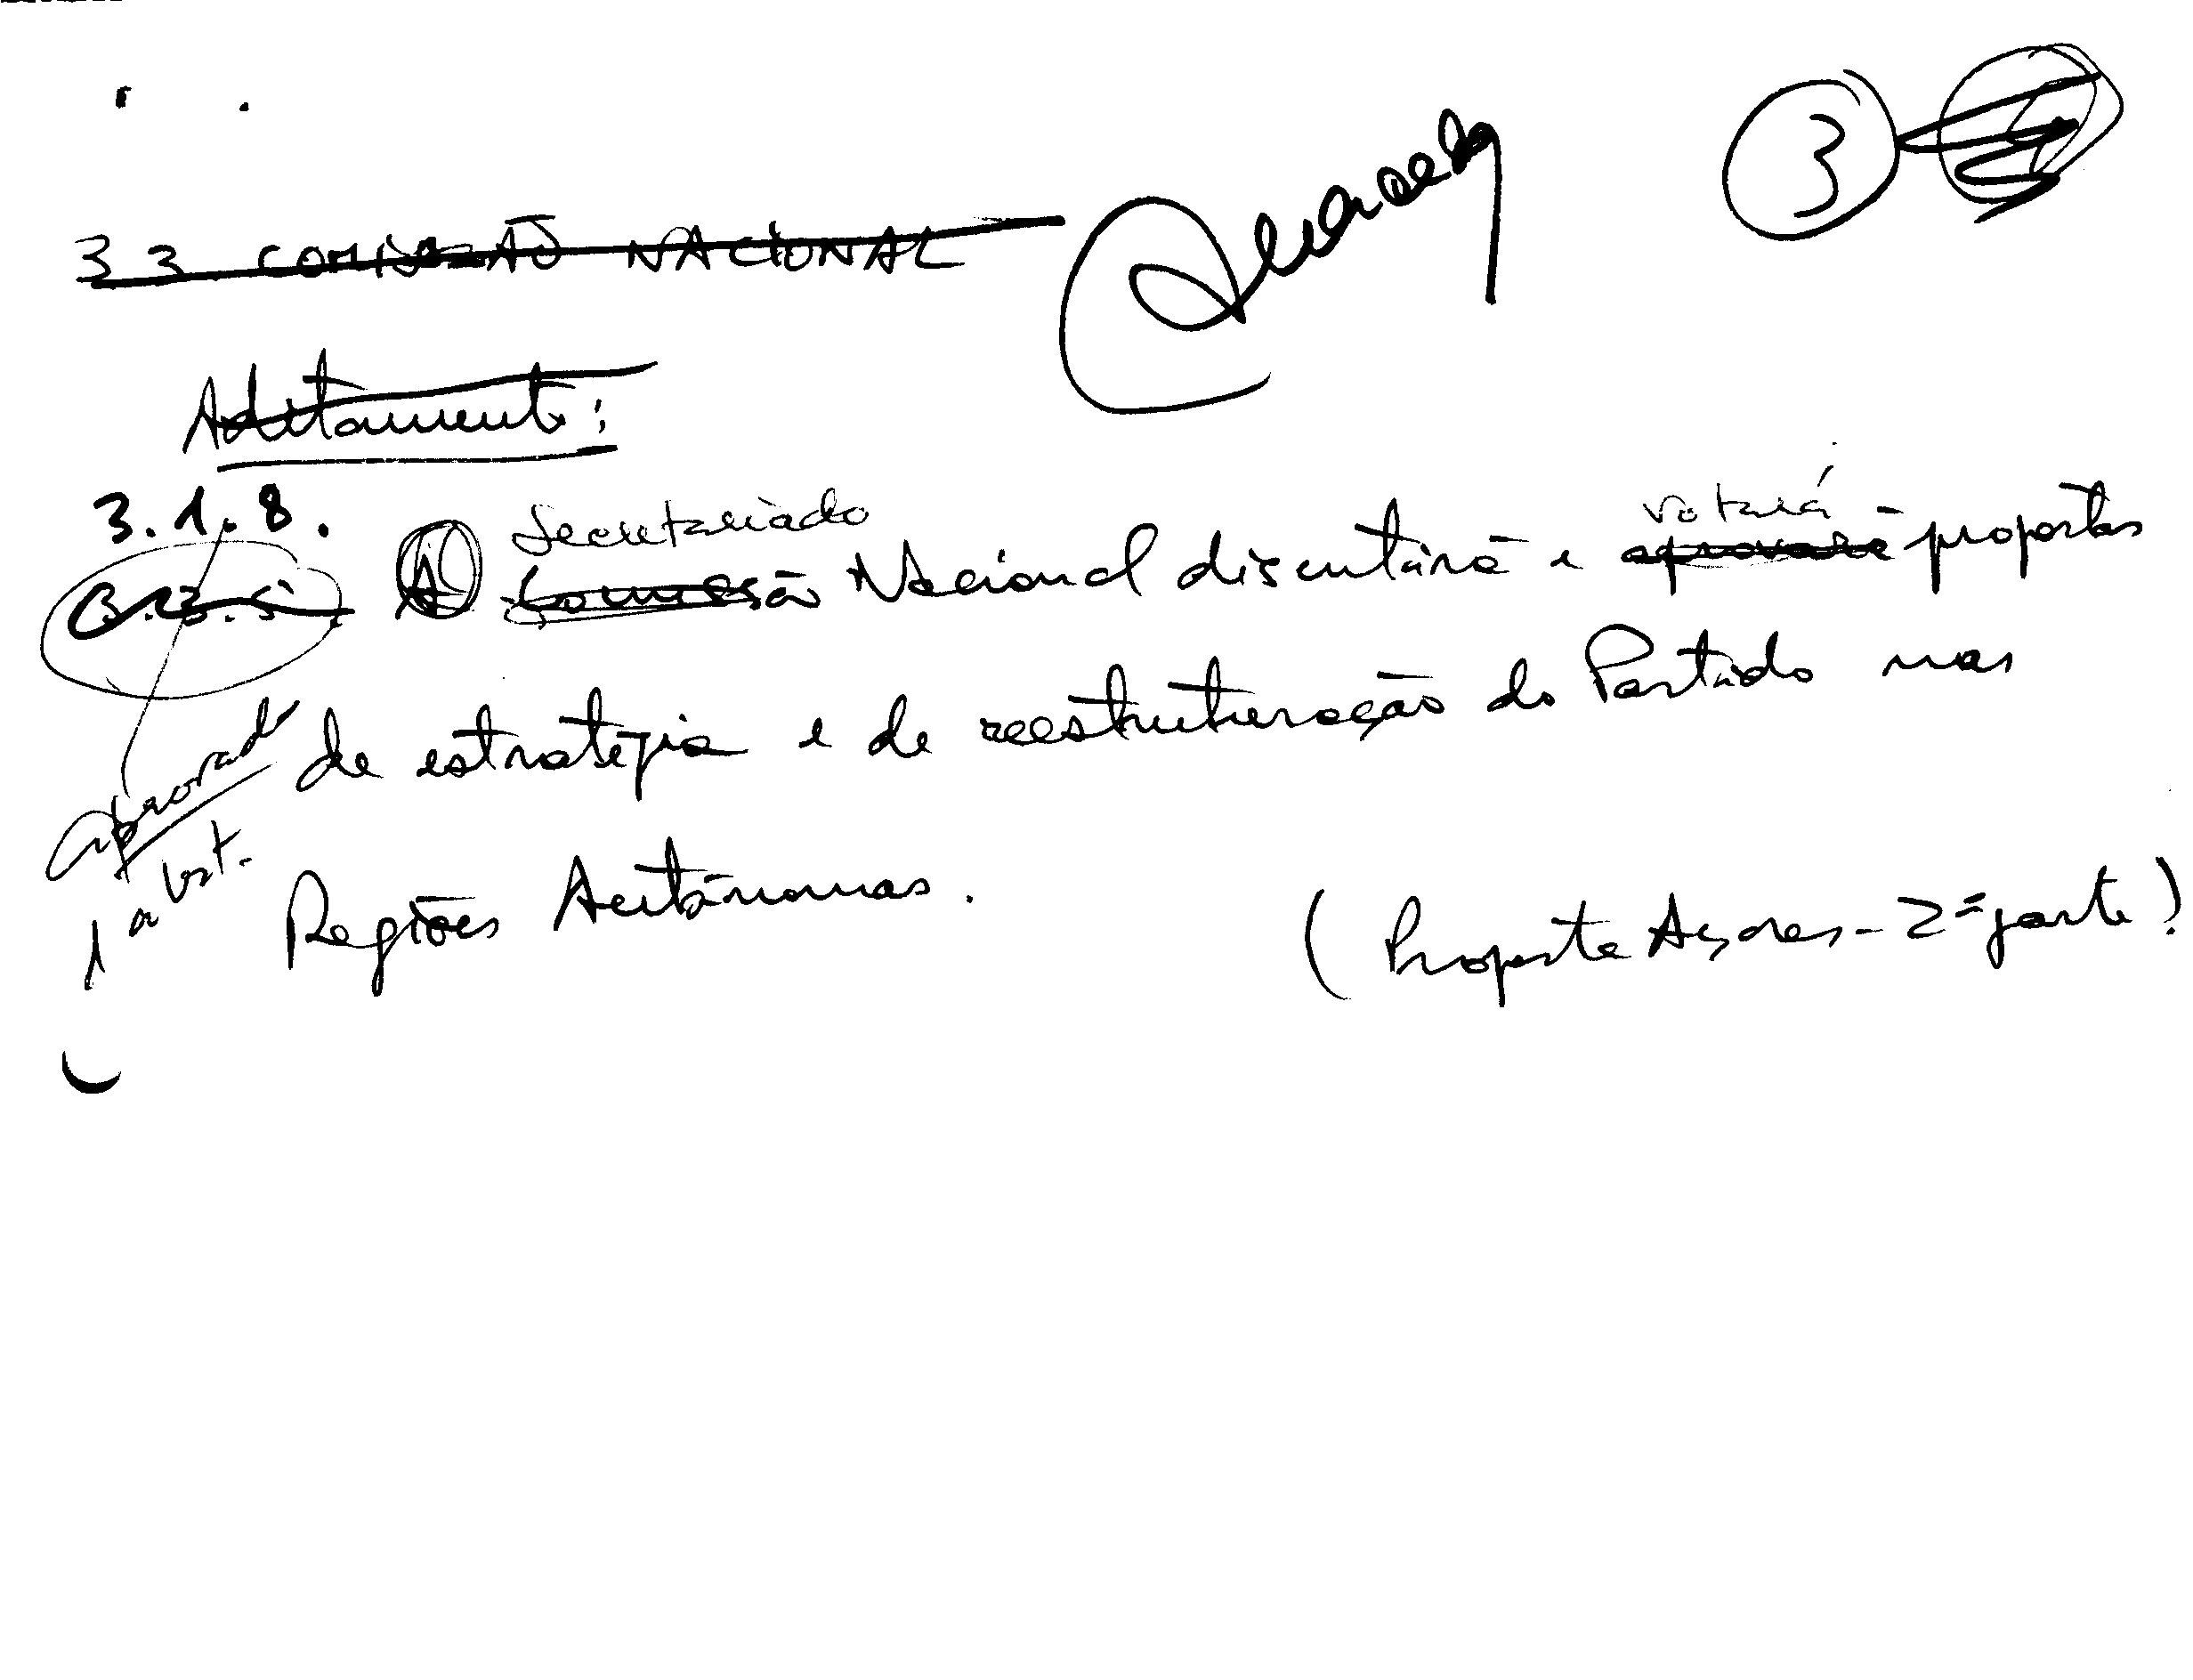 3
3 3 COMISSÃO NACIONAL
Aditamento:
3.1.8. Secretariado votará
3.3.5. A O Comissão Nacional discutirá e aprovará propostas
de estratégia e de reestruturação do Partido nas
Regiões Autónomas.
aprovado
1ª vot.
(Proposta Açores - 2ª parte)